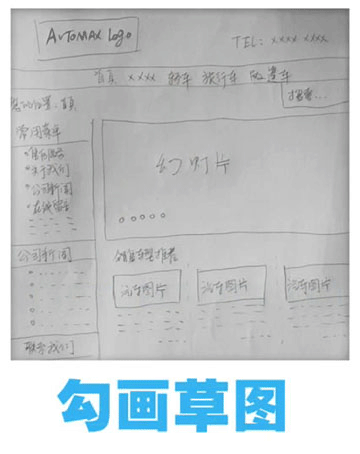 AUTOMAX Logo
TEL: xxxx xxxx
首页 xxxx 轿车 旅行车 改装车
搜索...
首页
常用菜单
关于我们
公司新闻
在线留言
幻灯片
公司新闻
车型推荐
汽车图片 汽车图片 汽车图片
联系我们
勾画草图